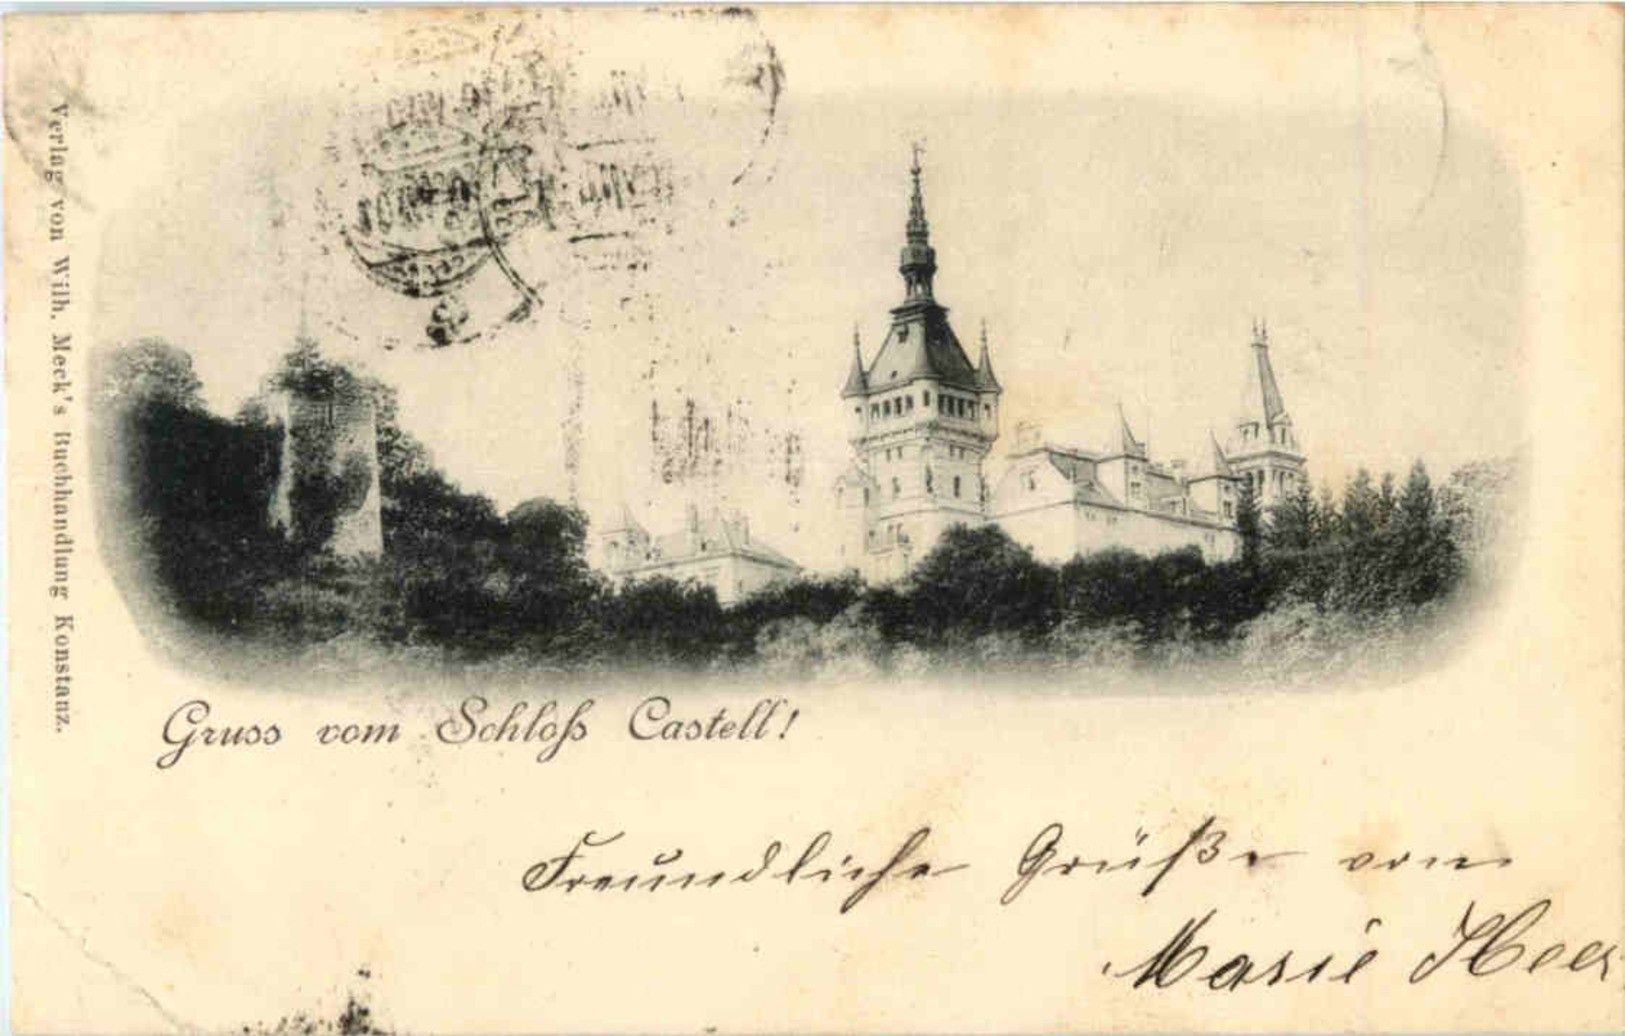 Verlag von Wilh. Meck's Buchhandlung Konstanz.
Gruss vom Schloß Castell!
Freundliche Grüße von
Marie Heer